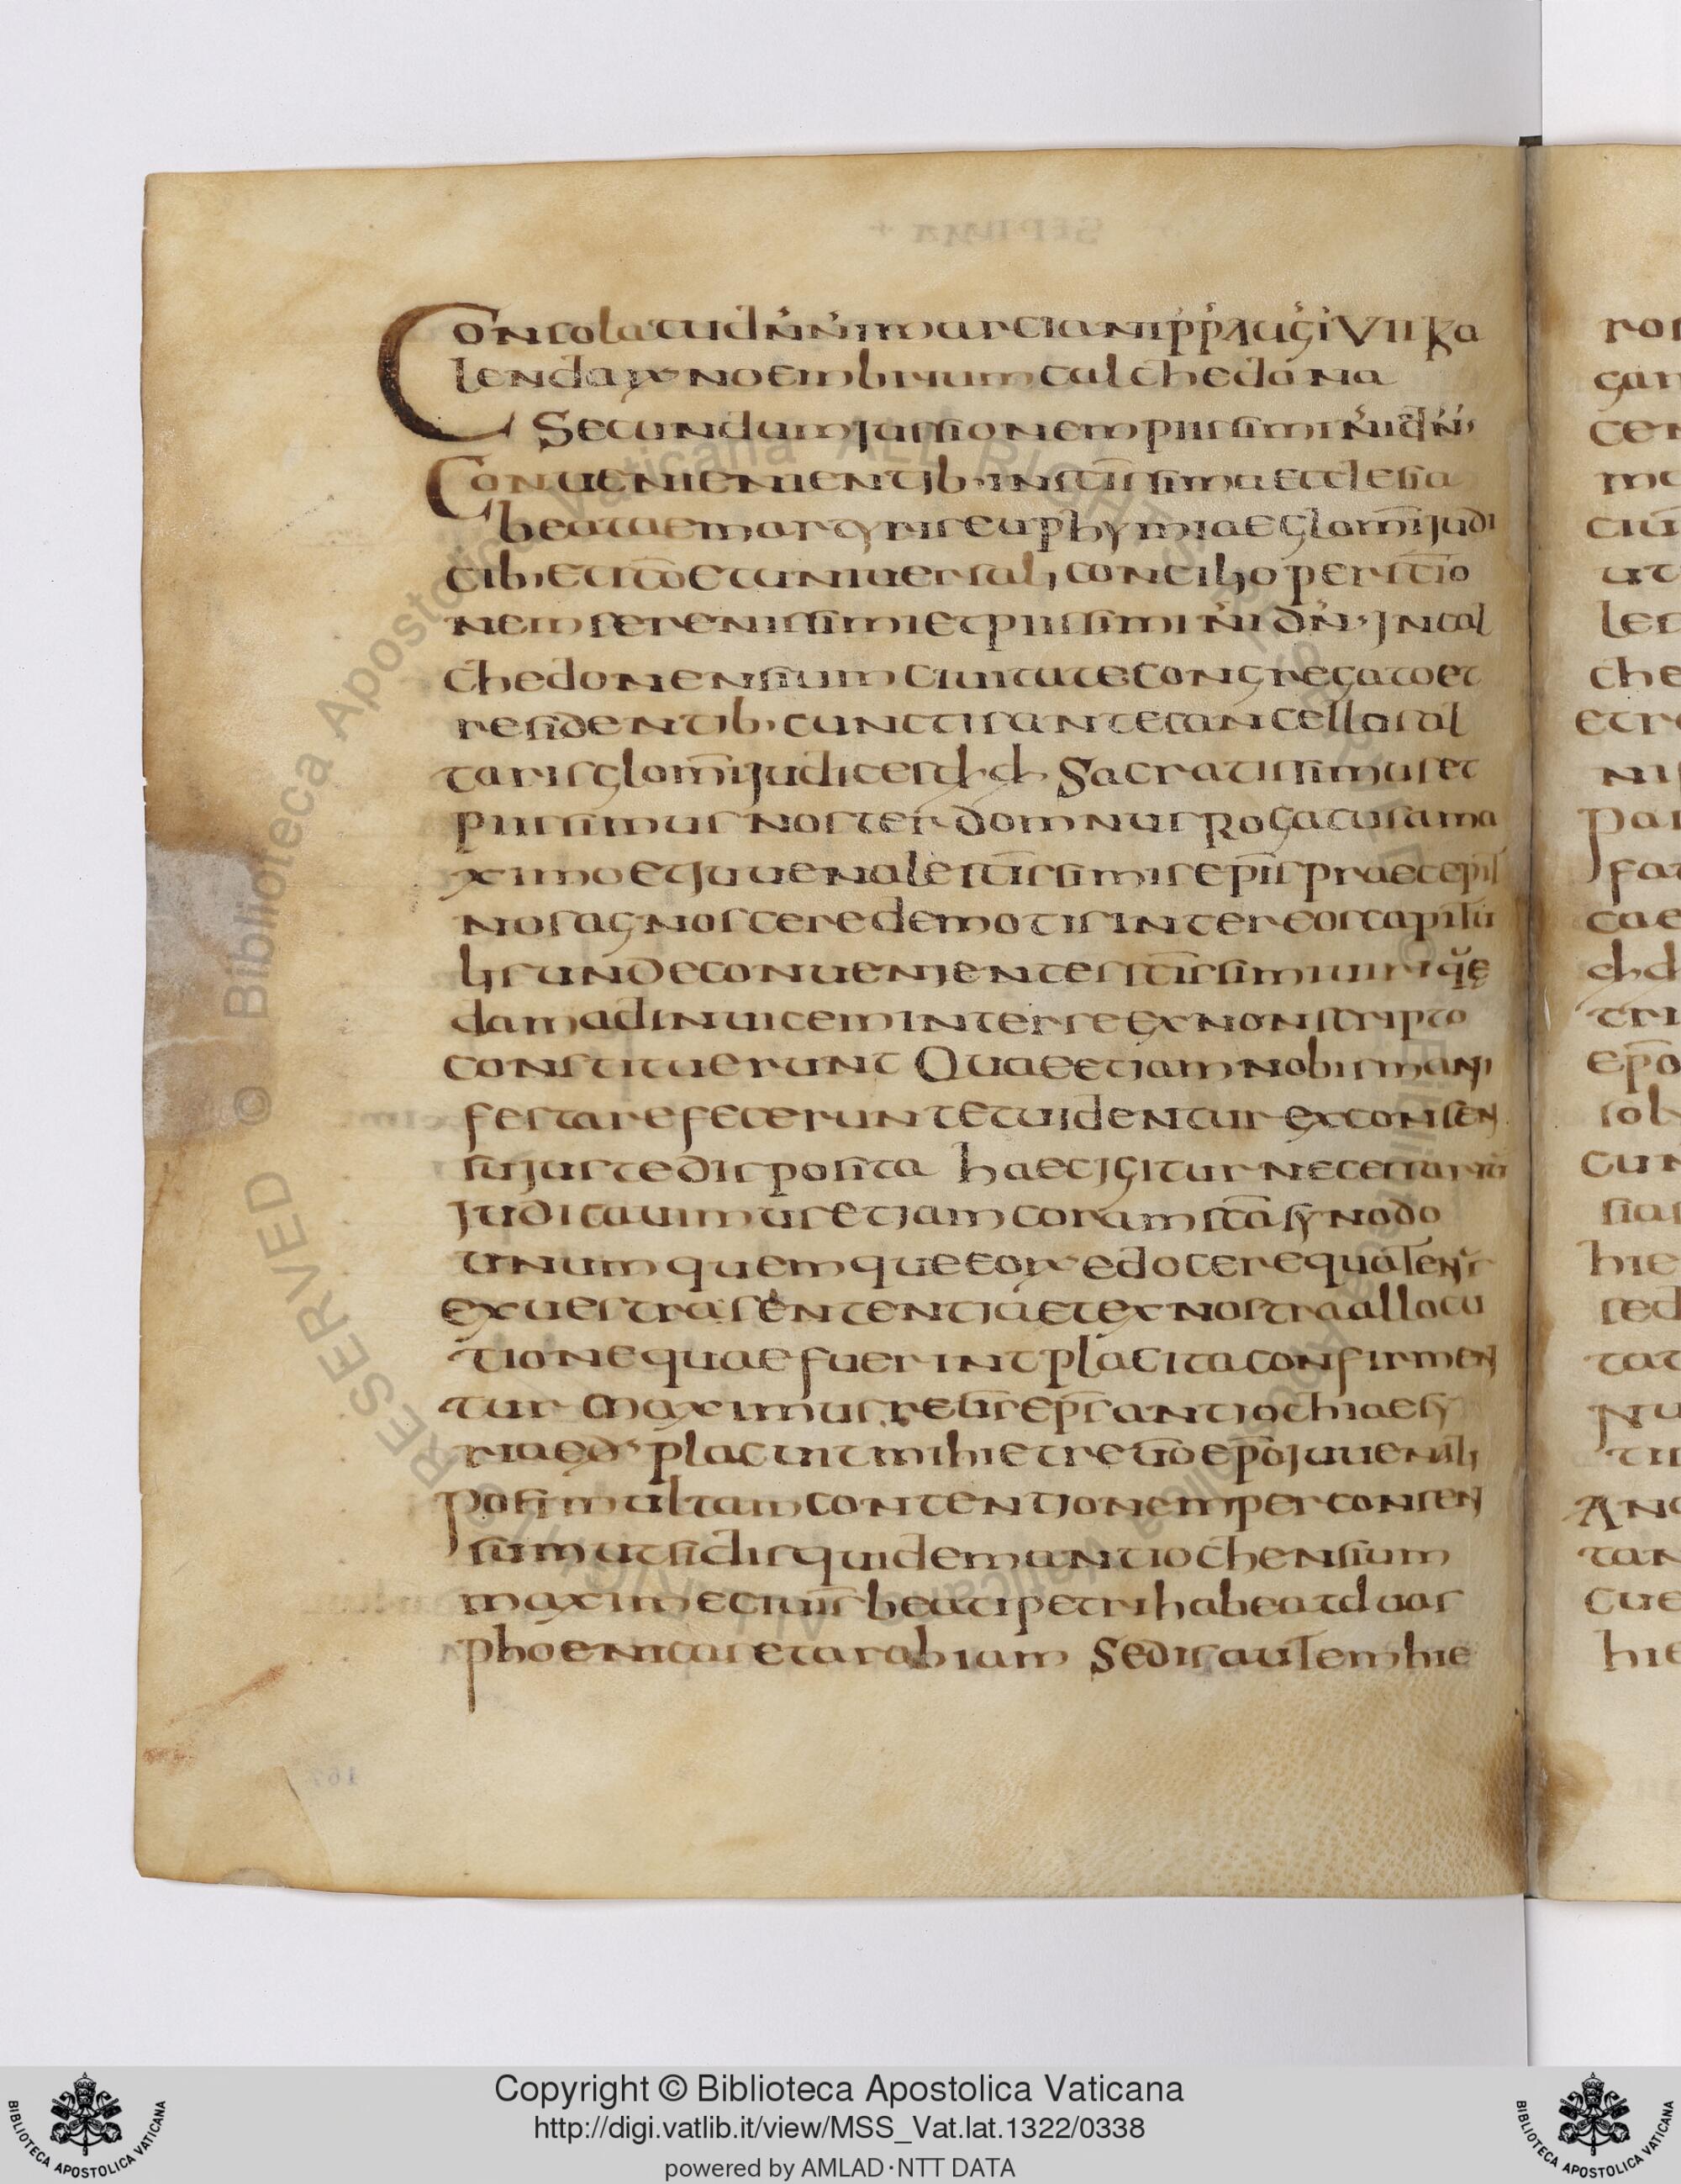 Consolatu dn̄i n̄i marciani p̄p̄ aug̅i VII ka
lendarx noembrium calchedona
Secundum jussionem piissimi n̄i dn̄i
Convenienientib· in sc̄issima ecclesia
beatae martyris euphymiae glom̄i judi
cib· et sc̄o et universali concilio per sc̄tio
nem serenissimi et piissimi n̄i dn̄i· In cal
chedonensium civitate congregato et
residentib· cunctis ante cancellos al
taris glom̄i judices dd Sacratissimus et
piissimus noster domnus Rogatus a ma
ximo et juvenale sc̄issimis ep̄is praecepit
nos agnoscere de motis inter eos capitu
lis unde convenientes sc̄issimi viri quę
dam ad invicem inter se ex non scripto
constituerunt Quae etiam nobis mani
festare fecerunt et videntur ex consen
su juste disposita haec igitur necessariū
judicavimus etiam coram sc̄a synodo
unumquemque eorx edocere quatenus
ex vestra sententia et ex nostra allocu
tione quae fuerint placita confirmen
tur Maximus rev̄s ep̄s antiochiae sy
riae d· placuit mihi et rev̄o ep̄o juvenali
post multam contentionem per consen
sum ut sidis quidem antiochensium
maxime civiīs beati petri habeat duas
phoenicas et arabiam Sedis autem hie
Copyright © Biblioteca Apostolica Vaticana
http://digi.vatlib.it/view/MSS_Vat.lat.1322/0338
powered by AMLAD·NTT DATA
BIBLIOTECA APOSTOLICA VATICANA
BIBLIOTECA APOSTOLICA VATICANA